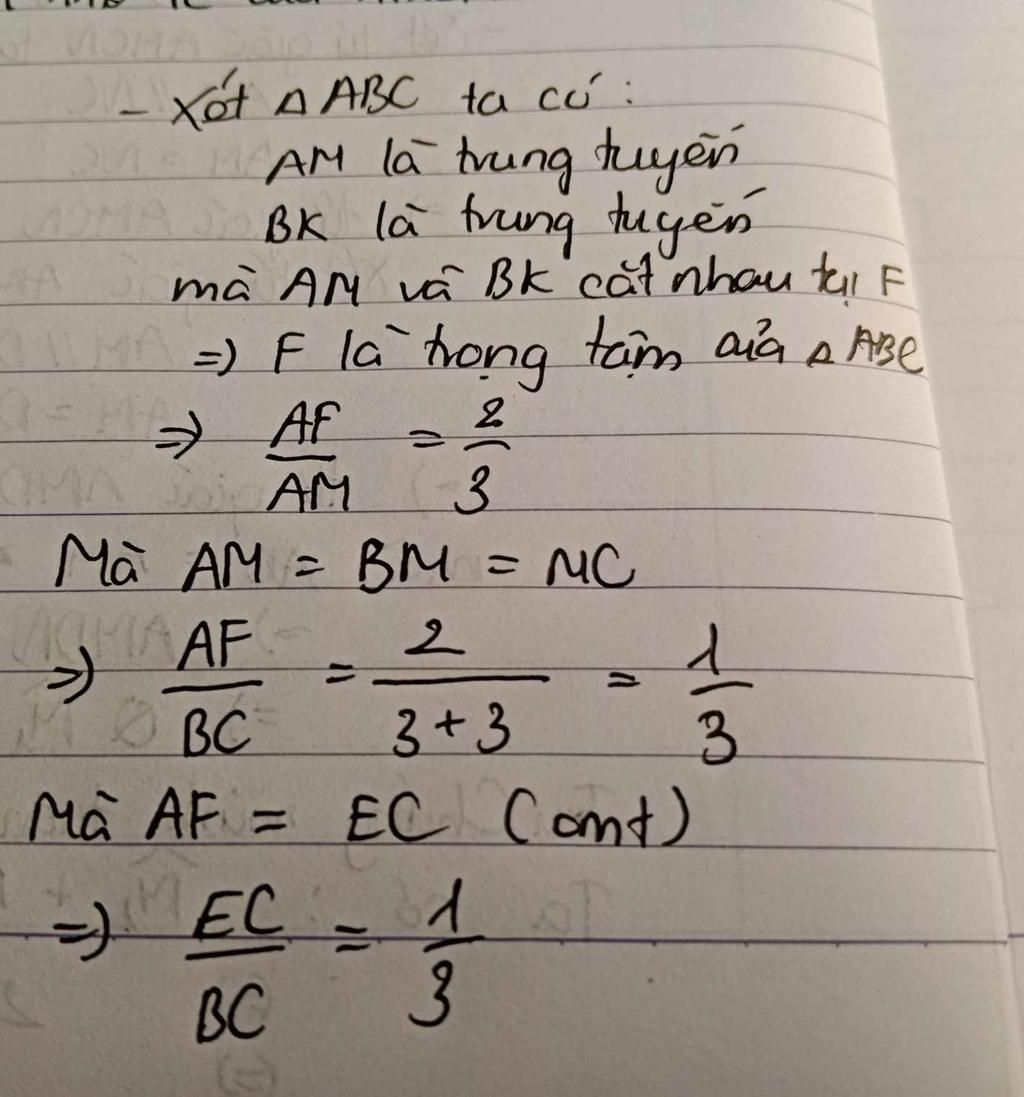 - Xét Δ ABC ta có :
AM là trung tuyến
BK là trung tuyến
mà AM và BK cắt nhau tại F
=> F là trọng tâm của Δ ABC
=> AF/AM = 2/3
Mà AM = BM = MC
=> AF/BC = 2/(3+3) = 1/3
Mà AF = EC (cmt)
=> EC/BC = 1/3